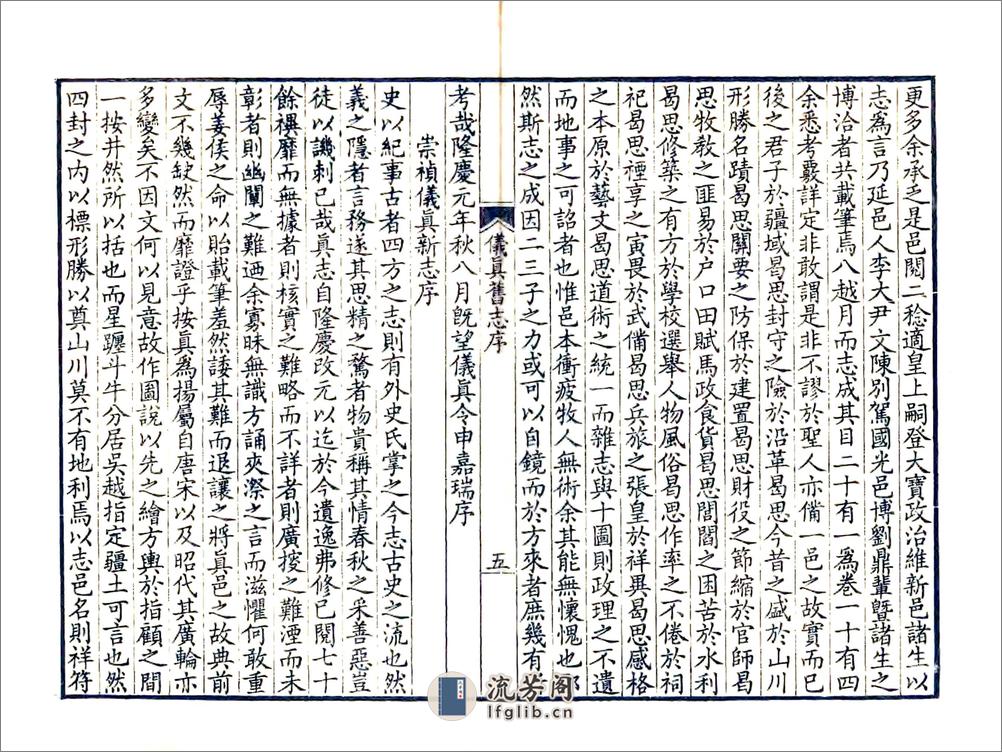 更多余承乏是邑閱二稔適皇上嗣登大寶政治維新邑諸生以
志爲言乃延邑人李大尹文陳別駕國光邑博劉鼎輩暨諸生之
博洽者共載筆焉八越月而志成其目二十有一爲卷一十有四
余悉考覈詳定非敢謂是非不謬於聖人亦備一邑之故實而已
後之君子於疆域曷思封守之險於沿革曷思今昔之盛於山川
形勝名蹟曷思關要之防保於建置曷思財役之節縮於官師曷
思牧教之匪易於户口田賦馬政食貨曷思閭閻之困苦於水利
曷思修築之有方於學校選舉人物風俗曷思作率之不倦於祠
祀曷思禋享之寅畏於武備曷思兵旅之張皇於祥異曷思感格
之本原於藝文曷思道術之統一而雜志與十圖則政理之不遺
而地事之可詔者也惟邑本衝疲牧人無術余其能無懷愧也
然斯志之成因二三子之力或可以自鏡而於方來者庶幾有
儀眞舊志序
五
考哉隆慶元年秋八月旣望儀眞令申嘉瑞序
崇禎儀眞新志序
史以紀事古者四方之志則有外史氏掌之今志古史之流也然
義之隱者言務遂其思精之騖者物貴稱其情春秋之采善惡豈
徒以譏刺已哉眞志自隆慶改元以迄於今遺逸弗修已閱七十
餘禩靡而無據者則核實之難略而不詳者則廣搜之難湮而未
彰者則幽闡之難迺余寡昧無識方誦夾漈之言而滋懼何敢重
辱姜侯之命以貽載筆羞然諉其難而退讓之將眞邑之故典前
文不幾缺然而靡證乎按眞爲揚屬自唐宋以及昭代其廣輪亦
多變矣不因文何以見意故作圖説以先之繪方輿於指顧之間
一按井然所以括也而星躔斗牛分居吳越指定疆土可言也然
四封之内以標形勝以奠山川莫不有地利焉以志邑名則祥符
流芳阁
lfglib.cn